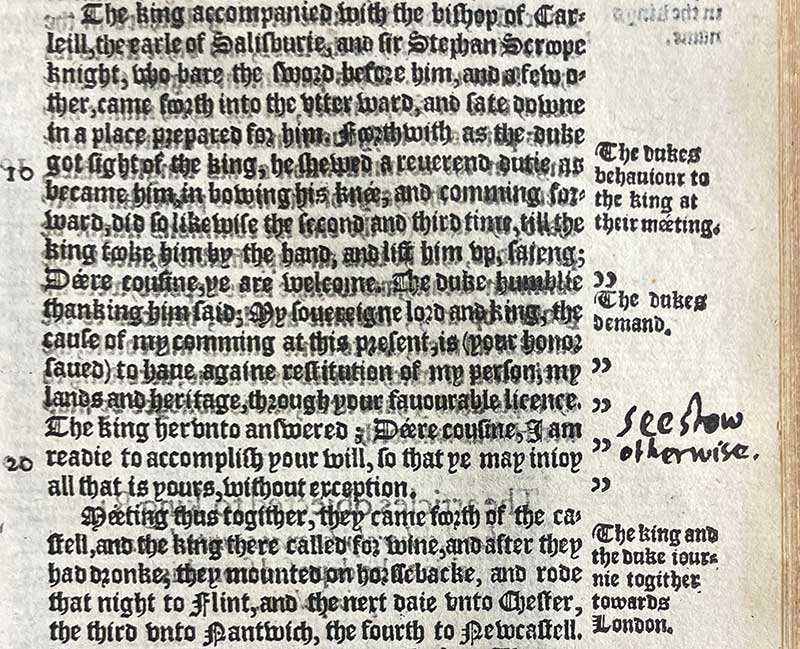 The king accompanied with the bishop of Car-
leill, the earle of Salisburie, and sir Stephan Scrope
knight, who bare the sword before him, and a few o-
ther, came foorth into the vtter ward, and sate downe
in a place prepared for him. Foorthwith as the duke
got sight of the king, he shewed a reuerend dutie as
became him, in bowing his knée, and comming for-
ward, did so likewise the second and third time, till the
king tooke him by the hand, and lift him vp, saieng;
Déere cousine, ye are welcome. The duke humblie
thanking him said; My souereigne lord and king, the
cause of my comming at this present, is (your honor
saued) to haue againe restitution of my person, my
lands and heritage, through your fauourable licence.
The king hervnto answered; Déere cousine, I am
readie to accomplish your will, so that ye may inioy
all that is yours, without exception.
Méeting thus togither, they came foorth of the ca-
stell, and the king there called for wine, and after they
had dronke, they mounted on horssebacke, and rode
that night to Flint, and the next daie vnto Chester,
the third vnto Nantwich, the fourth to Newcastell.
10
20
The dukes
behauiour to
the king at
their méeting.
”
The dukes
demand.
”
”
”
”
see stow
otherwise.
The king and
the duke iour-
nie togither
towards
London.